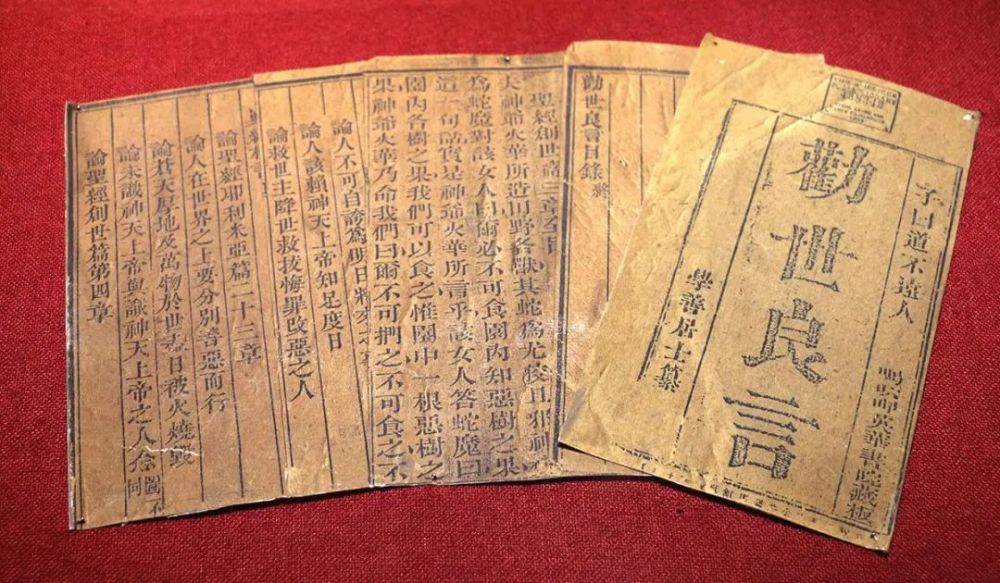 子曰道不遠人
英華書院藏板
勸世良言
學善居士纂
勸世良言目錄
聖經創世篇三章至
夫神爺火華所造田野各獸其蛇爲尤狡且邪神
爲蛇魔對該女人曰爾必不可食園內知惡樹之果
這一句話實是神爺火華所言乎該女人答蛇魔曰
園內各樹之果我們可以食之惟園中一根惡樹之
果神爺火華乃命我們曰爾不可捫之不可食之不
論人不可自誇爲明日將來之
論人該賴神天上帝知足度日
論救世主降世救拔悔罪改惡之人
論聖經耶利米亞篇二十三章
論人在世界之上要分別善惡而行
論蒼天厚地及萬物於世盡日被火燒毀
論未識神天上帝與識神天上帝之人
論聖經創世篇第四章